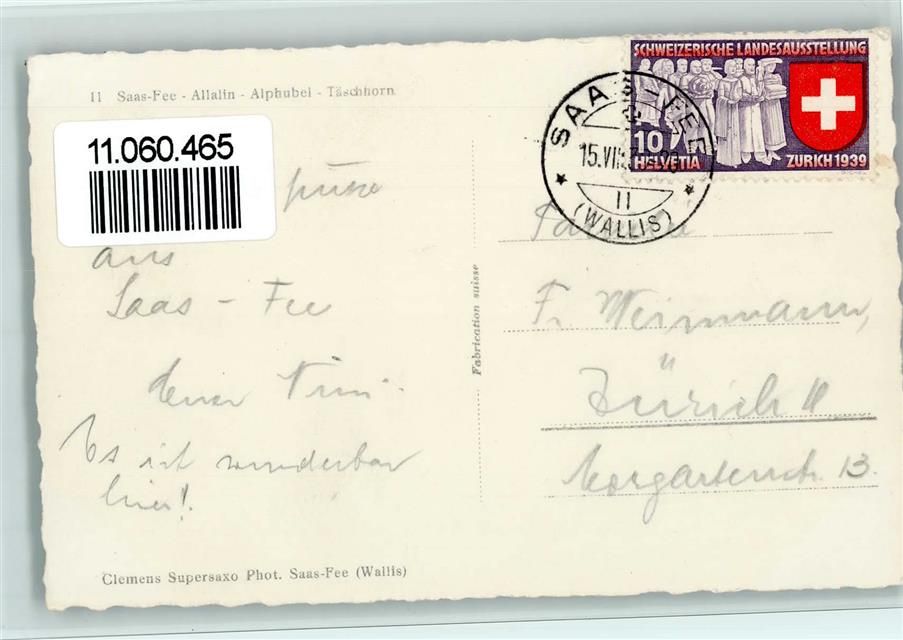 11 Saas-Fee - Allalin - Alphubel - Täschhorn
11.060.465
aus
Saas - Fee
Es ist wunderbar
hier!
Clemens Supersaxo Phot. Saas-Fee (Wallis)
Fabrication suisse
SCHWEIZERISCHE LANDESAUSSTELLUNG
10
HELVETIA
ZURICH 1939
SAAS-FEE
15.VII
11
(WALLIS)
F. Weinmann,
Zürich 4
Morgartenstr. 13.